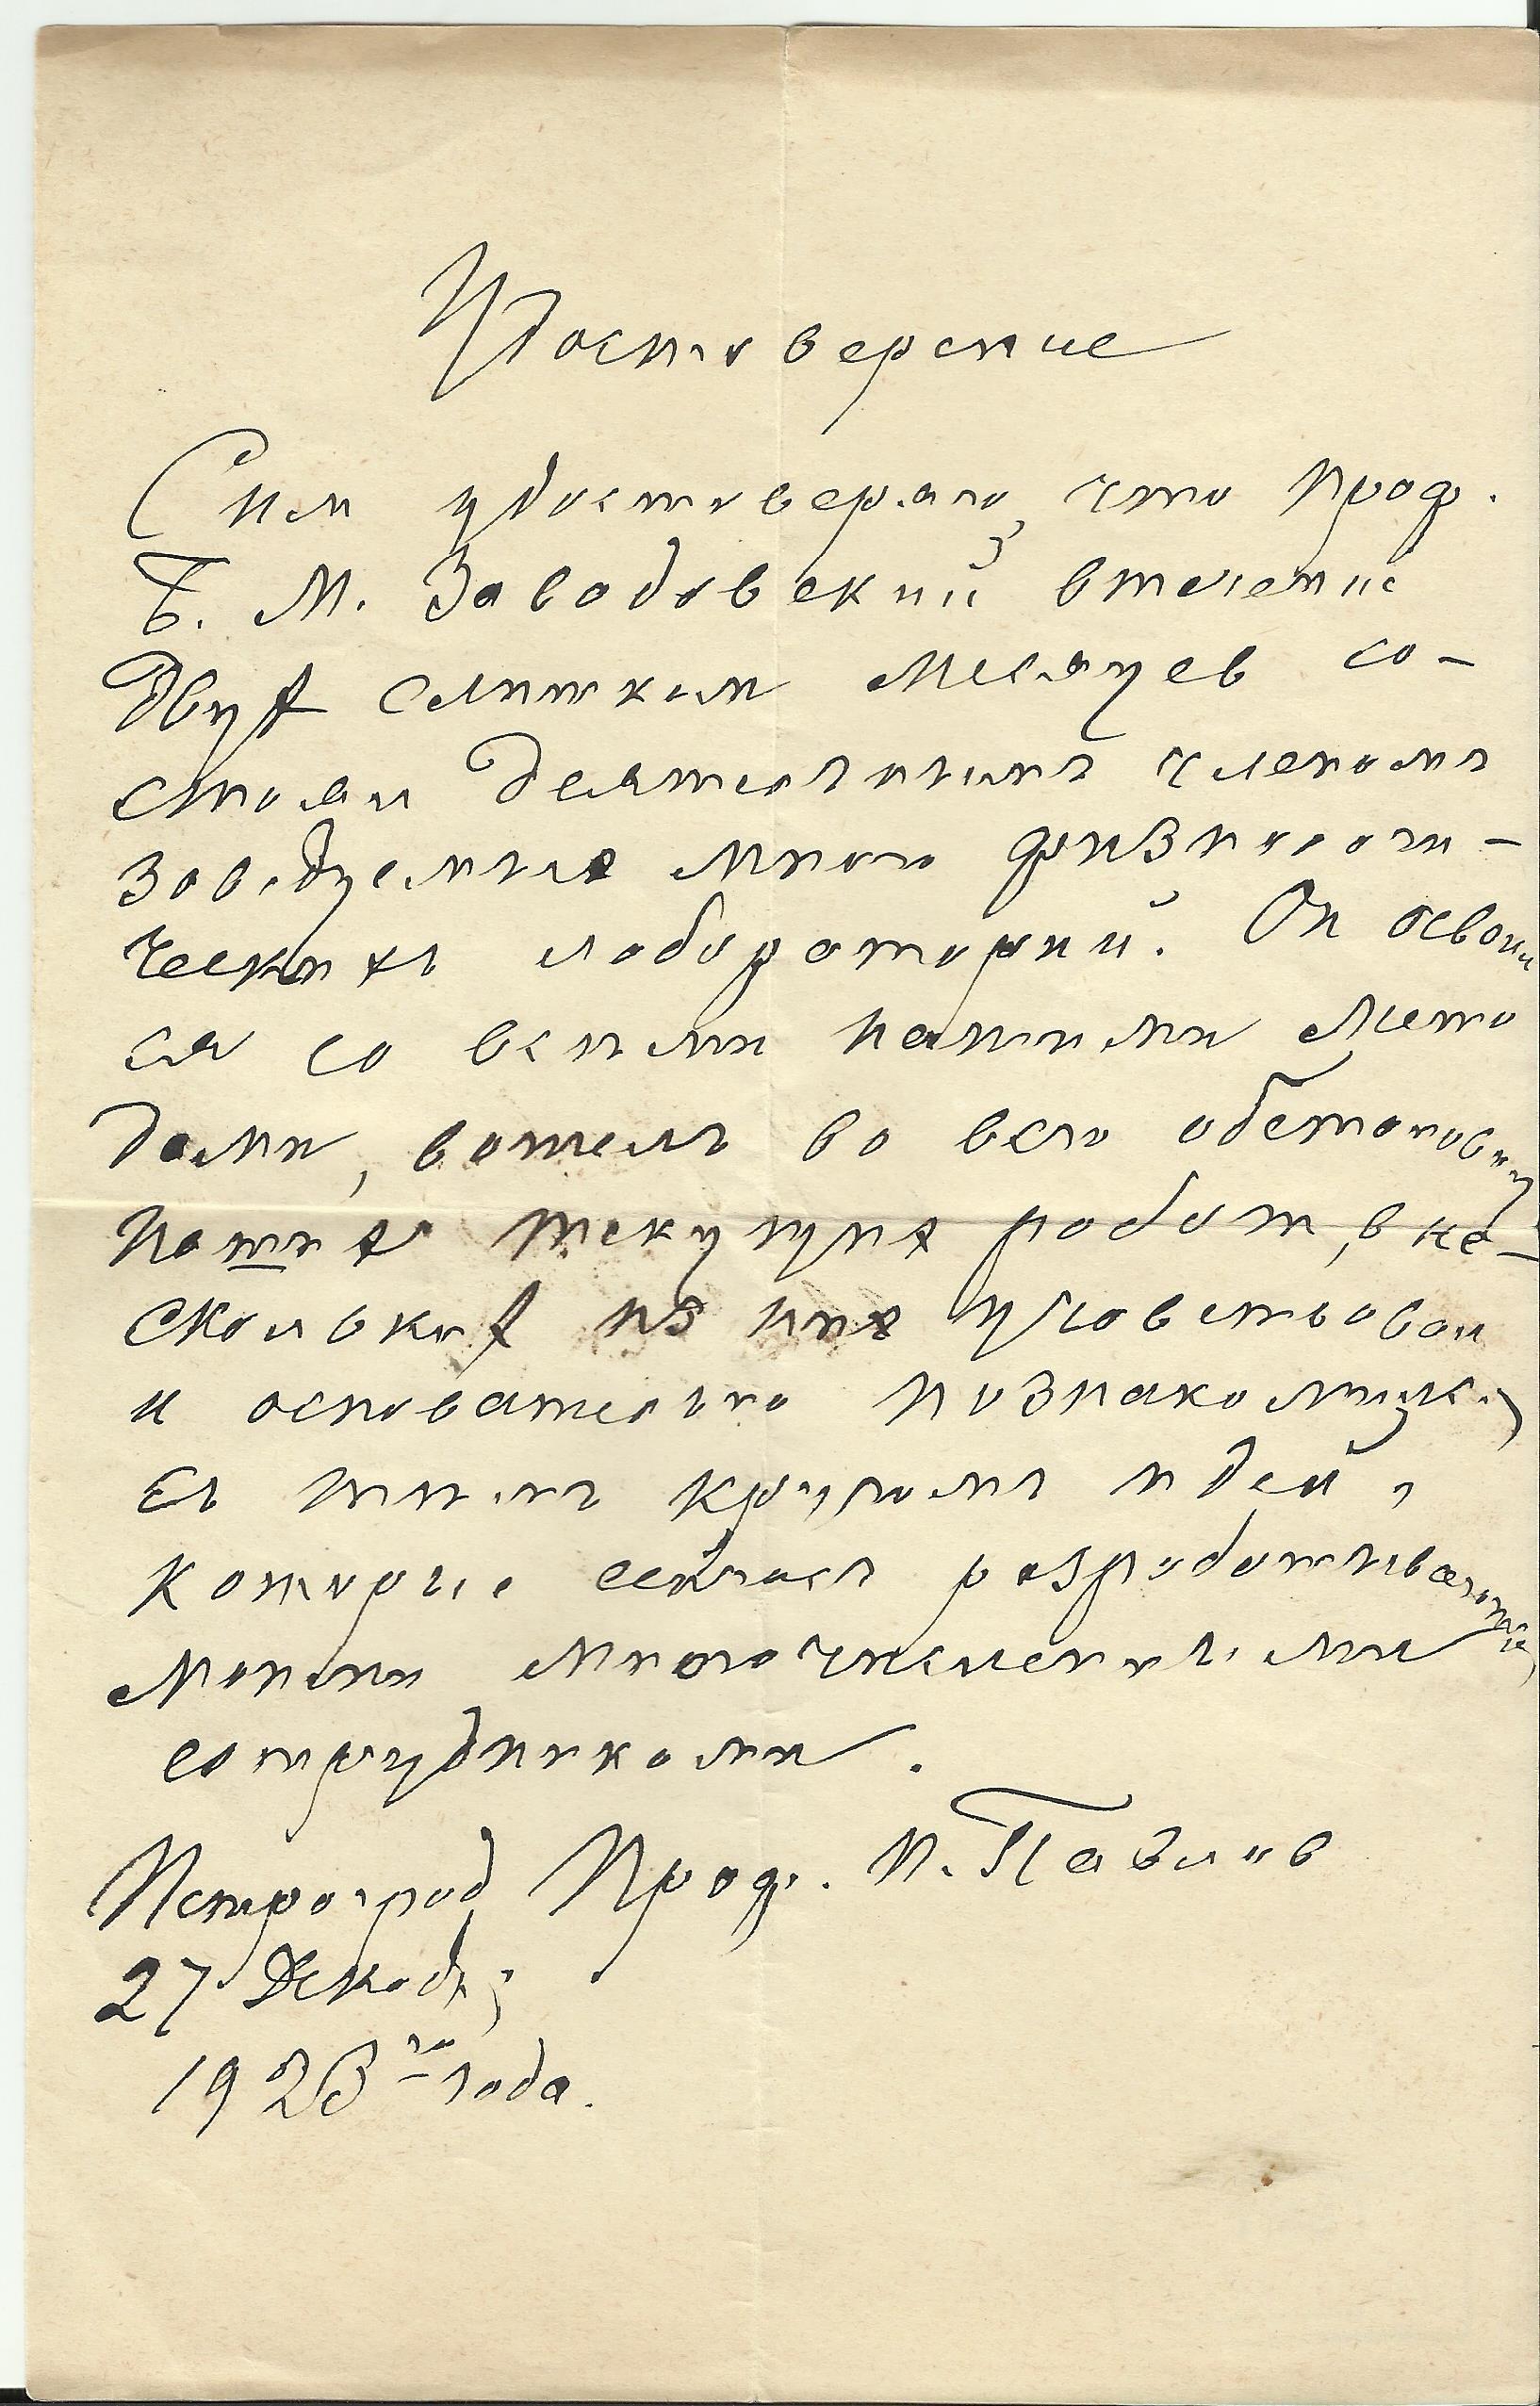 Удостоверение
Сим удостоверяю, что проф.
Б. М. Завадовский втечение
двух слишком месяцев со-
стоял деятельным членом
заведуемых мною физиологи-
ческихъ лабораторий. Он освоил
ся со всеми нашими мето
дами, вошелъ во всю обстановку
наших текущих работ, в не-
скольких из них участвовал
и основательно познакомился
съ тѣмъ кругомъ идей,
которые сейчасъ разрабатываются
моими многочисленными
сотрудниками.
Петроград Проф. И. Павлов
27 Декабря
1923го года.